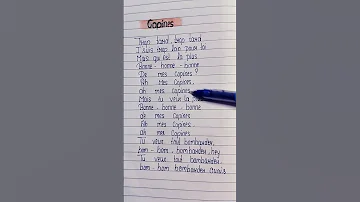 Copines
Trop tard, trop tard
J'suis trop loin pour toi
Mais qui est la plus
Bonne - bonne - bonne
De mes Copines?
Ah Mes Copines,
Ah mes Copines
Mais tu veux la plus
Bonne - bonne - bonne
de mes Copines
Ah mes Copines
Ah mes Copines
Tu veux tout bombarder,
bom - bom, bombarder, hey
Tu veux tout bombarder,
bom - bom bombarder